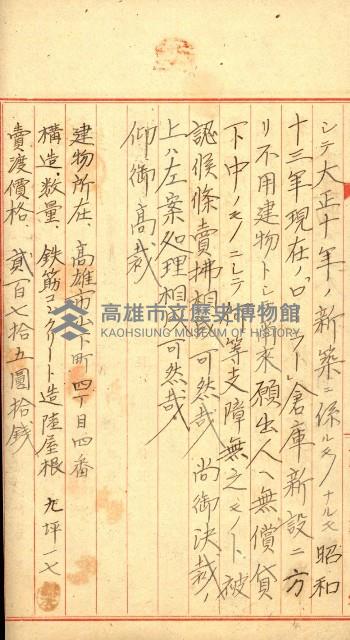 シテ大正十年ノ新築ニ係ルモノナルモ昭和
十三年現在ノ「ローラー」倉庫新設ニ方
リ不用建物トシテ爾来願出人ヘ無償貸
下中ノモノニシテ何等支障無之モノト被
認候條賣拂相成可然哉 尚御決裁ノ
上ハ左案処理相成可然哉
仰御高裁
建物所在、高雄市山下町四丁目四番
構造、数量、鉄筋コンクリート造陸屋根 九坪一七
賣渡價格、貳百七拾五圓拾錢
高雄市立歷史博物館
KAOHSIUNG MUSEUM OF HISTORY